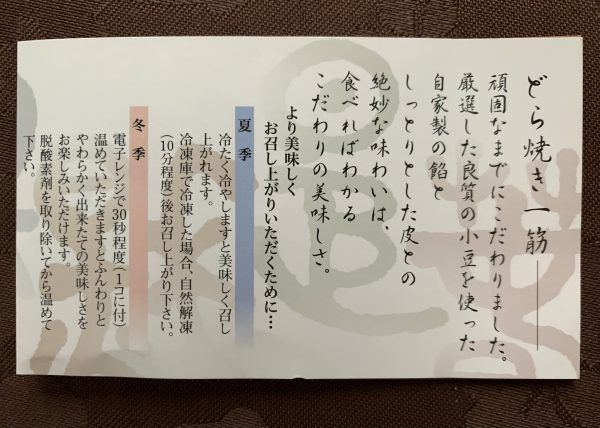 どら焼き一筋
頑固なまでにこだわりました。
厳選した良質の小豆を使った
自家製の餡と
しっとりとした皮との
絶妙な味わいは、
食べればわかる
こだわりの美味しさ。
より美味しく
お召し上がりいただくために…
夏 季
冷たく冷やしますと美味しく召し
上がれます。
冷凍庫で冷凍した場合、自然解凍
(10分程度)後お召し上がり下さい。
冬 季
電子レンジで30秒程度(1コに付)
温めていただきますとふんわりと
やわらかく出来たての美味しさを
お楽しみいただけます。
脱酸素剤を取り除いてから温めて
下さい。